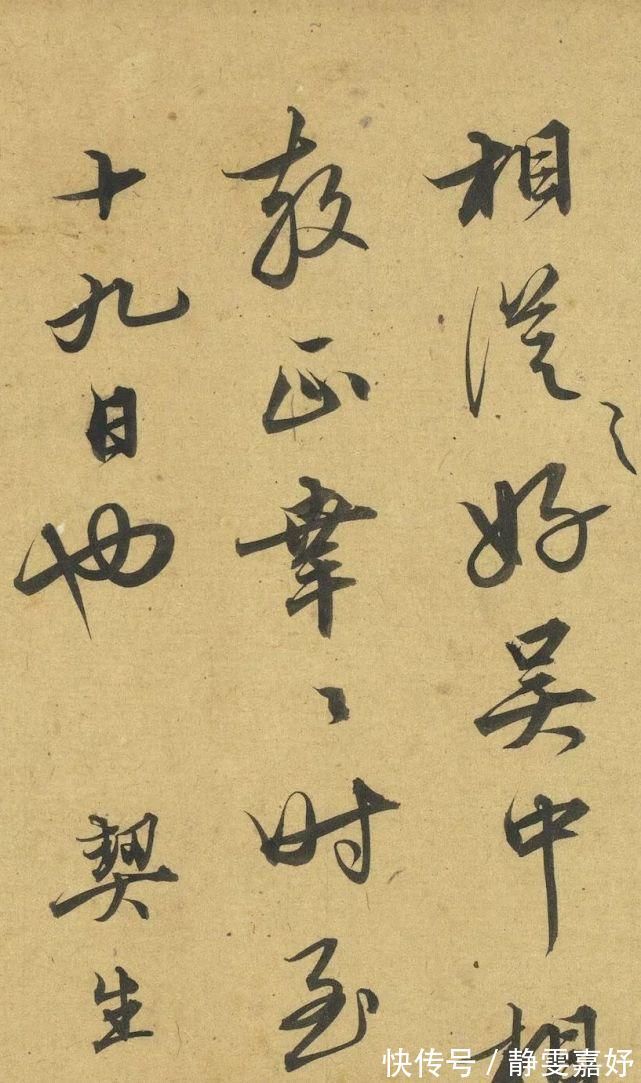 相從之好吴中相
教正幸〻时至
十九日也 契生
快传号/静雯嘉妤